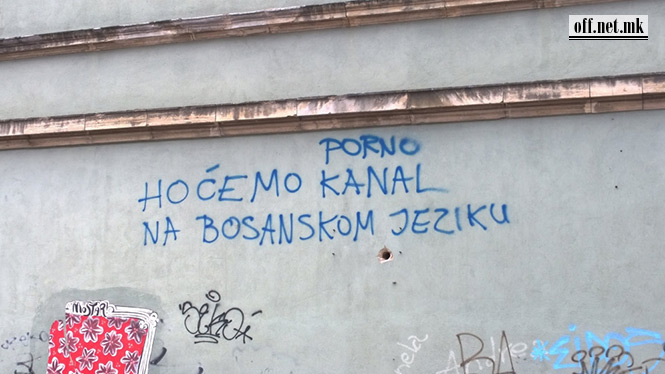 off.net.mk
PORNO
HOĆEMO KANAL
NA BOSANSKOM JEZIKU
MOSTAR